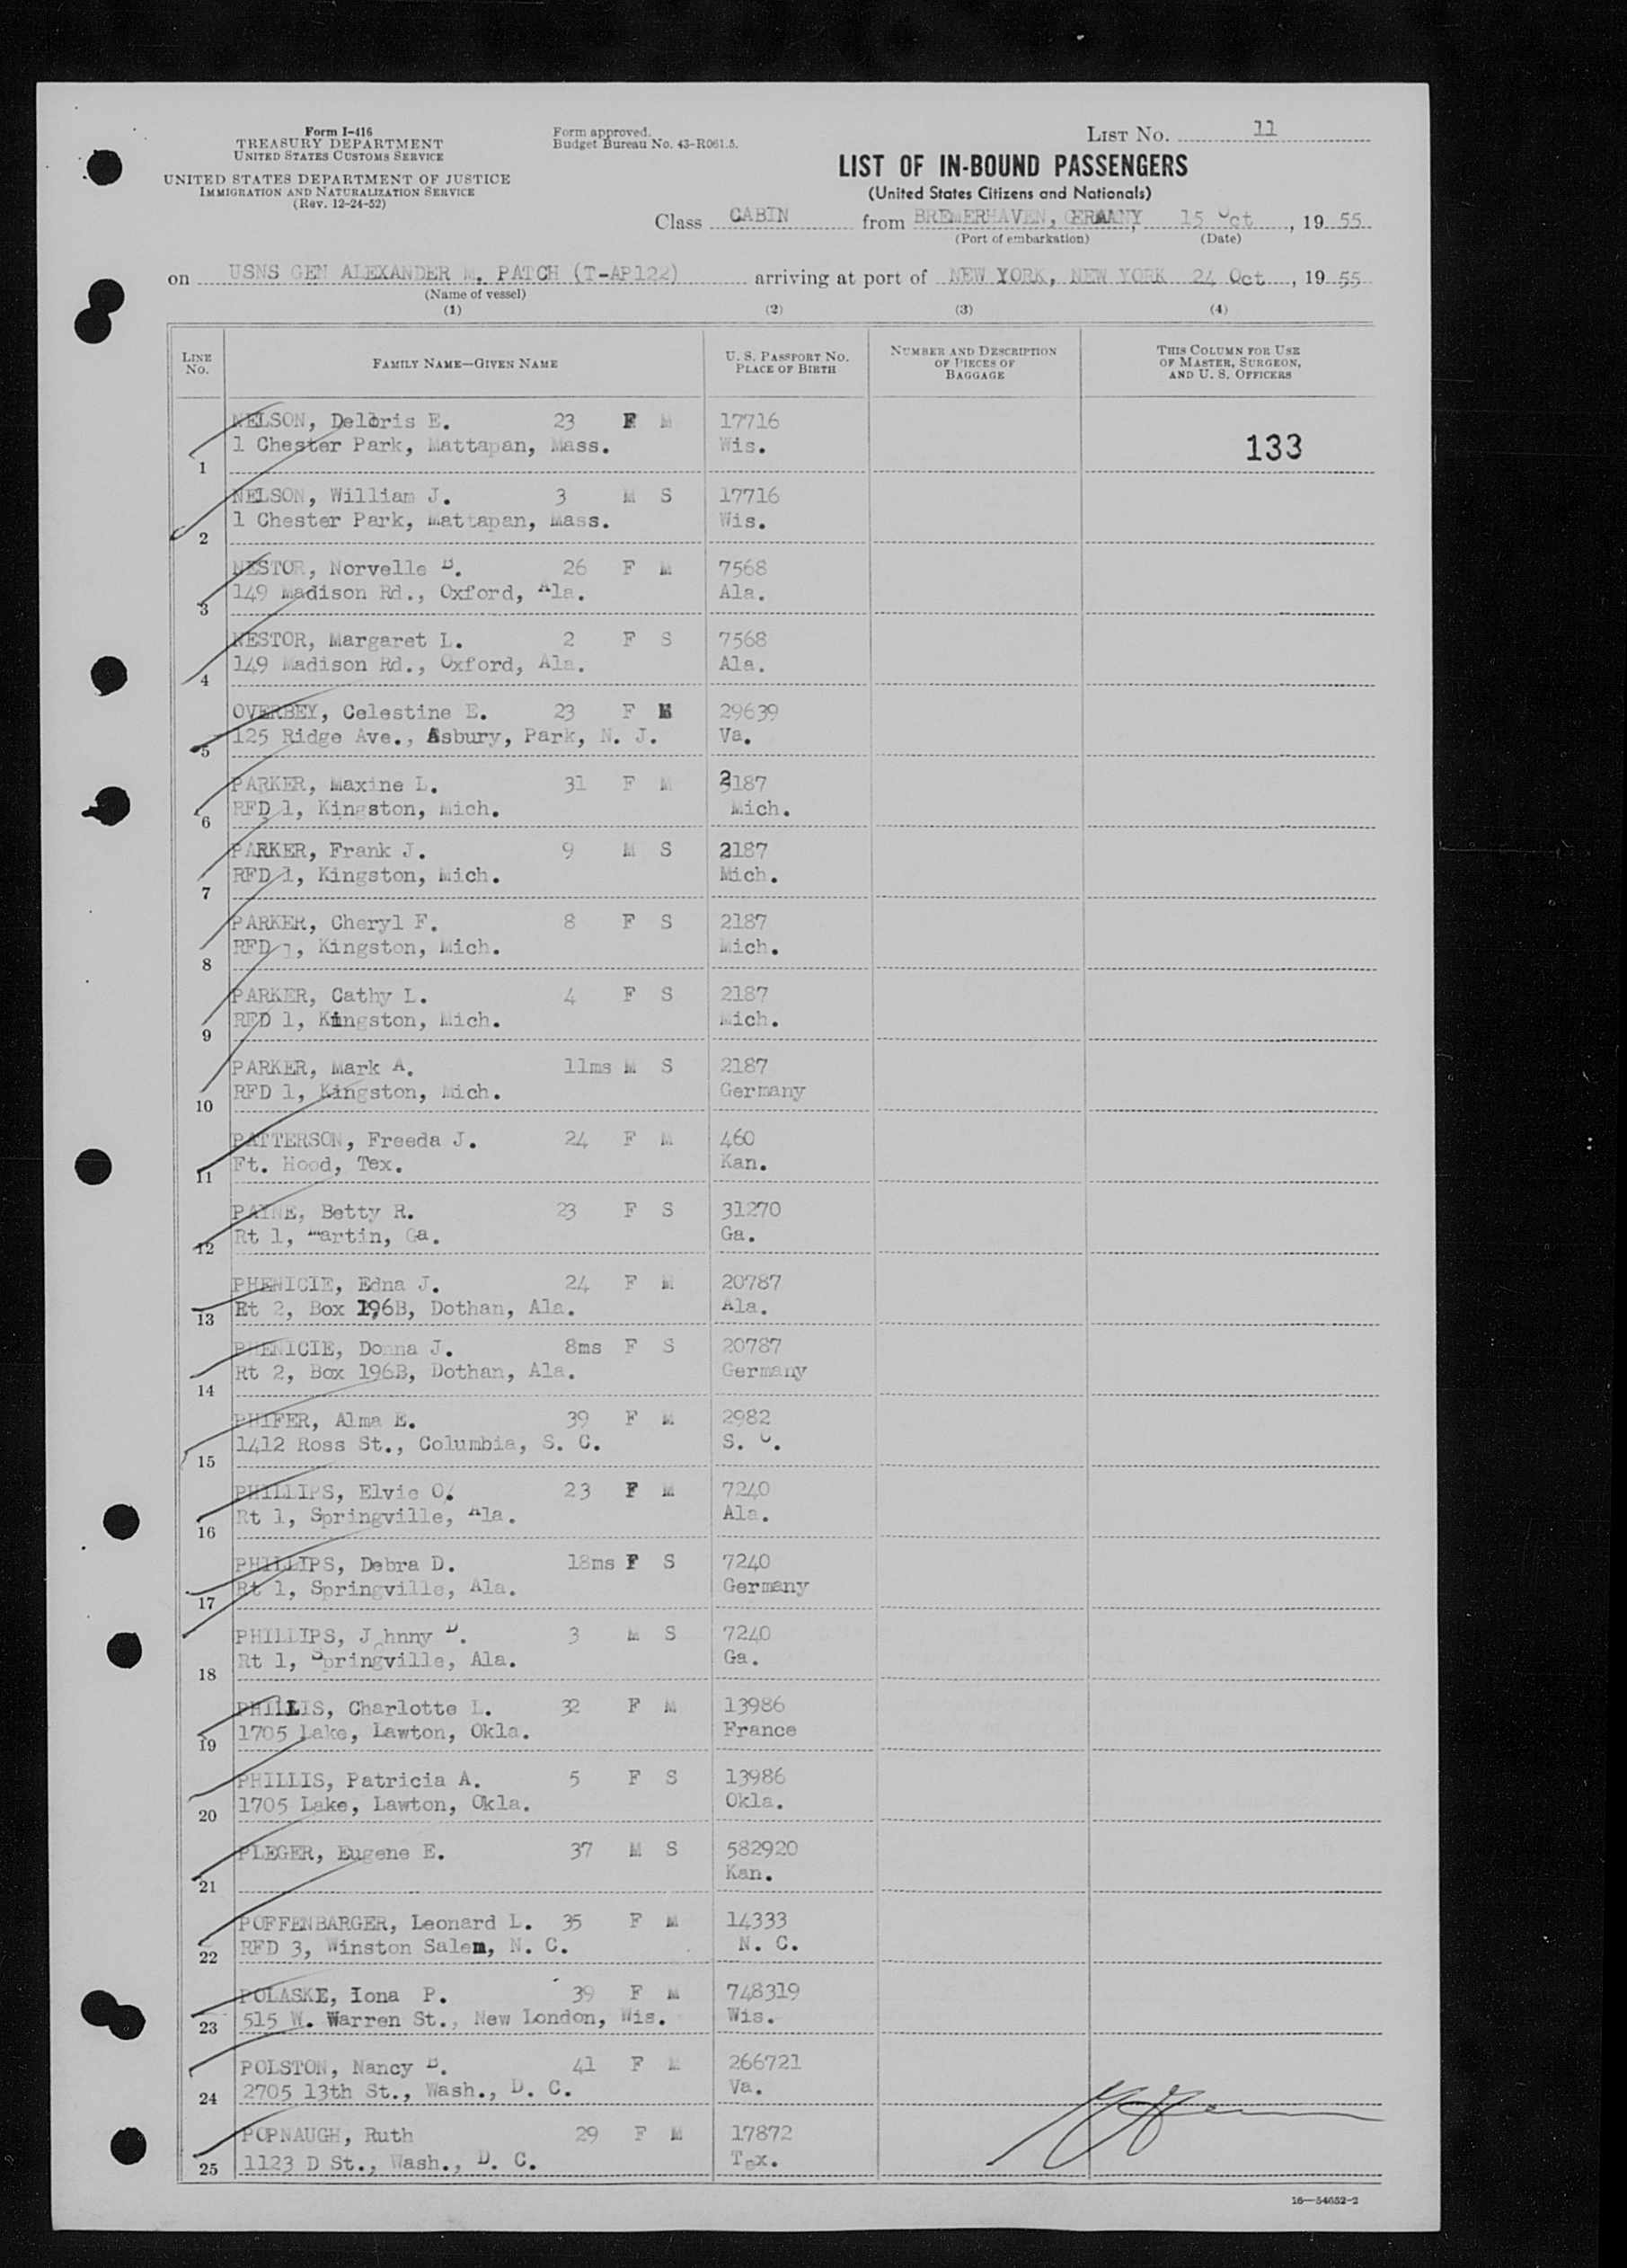 Form I-416
TREASURY DEPARTMENT
UNITED STATES CUSTOMS SERVICE
UNITED STATES DEPARTMENT OF JUSTICE
IMMIGRATION AND NATURALIZATION SERVICE
(Rev. 12-24-52)
Form approved.
Budget Bureau No. 43-R061.5.
LIST NO. 11
LIST OF IN-BOUND PASSENGERS
(United States Citizens and Nationals)
Class CABIN from BREMERHAVEN, GERMANY, 15 Oct, 19 55
(Port of embarkation) (Date)
on USNS GEN ALEXANDER M. PATCH (T-AP122) arriving at port of NEW YORK, NEW YORK 24 Oct, 19 55
(Name of vessel)
(1) (2) (3) (4)
LINE NO. FAMILY NAME—GIVEN NAME U. S. PASSPORT NO. PLACE OF BIRTH NUMBER AND DESCRIPTION OF PIECES OF BAGGAGE THIS COLUMN FOR USE OF MASTER, SURGEON, AND U. S. OFFICERS
NELSON, Deloris E. 23 F M 17716
1 1 Chester Park, Mattapan, Mass. Wis. 133
NELSON, William J. 3 M S 17716
2 1 Chester Park, Mattapan, Mass. Wis.
NESTOR, Norvelle B. 26 F M 7568
3 149 Madison Rd., Oxford, Ala. Ala.
NESTOR, Margaret L. 2 F S 7568
4 149 Madison Rd., Oxford, Ala. Ala.
OVERBEY, Celestine E. 23 F M 29639
5 125 Ridge Ave., Asbury, Park, N. J. Va.
PARKER, Maxine L. 31 F M 2187
6 RFD 1, Kingston, Mich. Mich.
PARKER, Frank J. 9 M S 2187
7 RFD 1, Kingston, Mich. Mich.
PARKER, Cheryl F. 8 F S 2187
8 RFD 1, Kingston, Mich. Mich.
PARKER, Cathy L. 4 F S 2187
9 RFD 1, Kingston, Mich. Mich.
PARKER, Mark A. 11ms M S 2187
10 RFD 1, Kingston, Mich. Germany
PATTERSON, Freeda J. 24 F M 460
11 Ft. Hood, Tex. Kan.
PAYNE, Betty R. 23 F S 31270
12 Rt 1, Martin, Ga. Ga.
PHENICIE, Edna J. 24 F M 20787
13 Rt 2, Box 196B, Dothan, Ala. Ala.
PHENICIE, Donna J. 8ms F S 20787
14 Rt 2, Box 196B, Dothan, Ala. Germany
PHIFER, Alma E. 39 F M 2982
15 1412 Ross St., Columbia, S. C. S. C.
PHILLIPS, Elvie O. 23 F M 7240
16 Rt 1, Springville, Ala. Ala.
PHILLIPS, Debra D. 18ms F S 7240
17 Rt 1, Springville, Ala. Germany
PHILLIPS, Johnny D. 3 M S 7240
18 Rt 1, Springville, Ala. Ga.
PHILLIS, Charlotte L. 32 F M 13986
19 1705 Lake, Lawton, Okla. France
PHILLIS, Patricia A. 5 F S 13986
20 1705 Lake, Lawton, Okla. Okla.
PLEGER, Eugene E. 37 M S 582920
21 Kan.
POFFENBARGER, Leonard L. 35 F M 14333
22 RFD 3, Winston Salem, N. C. N. C.
POLASKE, Iona P. 39 F M 748319
23 515 W. Warren St., New London, Wis. Wis.
POLSTON, Nancy B. 41 F M 266721
24 2705 13th St., Wash., D. C. Va.
POPNAUGH, Ruth 29 F M 17872
25 1123 D St., Wash., D. C. Tex.
16—54652-2